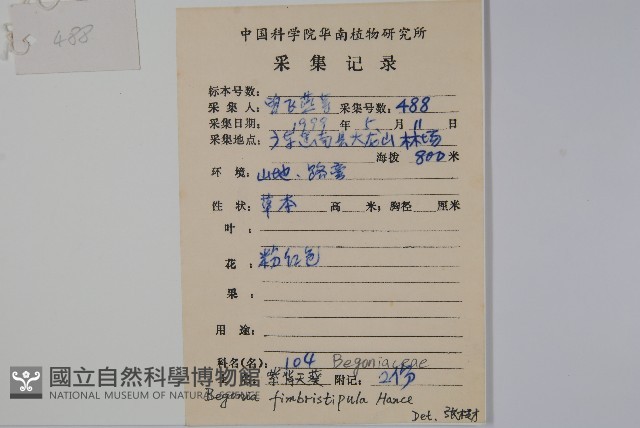 488
中国科学院华南植物研究所
采集记录
标本号数:
采集人: 曾飞燕 采集号数: 488
采集日期: 1999 年 5 月 11 日
采集地点: 广东连南县大龙山林场
海拨 800 米
环境: 山地、路旁
性状: 草本 高 米; 胸径 厘米
叶:
花: 粉红色
果:
用途:
科名(名): 104 Begoniaceae
紫背天葵 附记: 2份
Begonia fimbristipula Hance
Det.
國立自然科學博物館
NATIONAL MUSEUM OF NATURAL SCIENCE